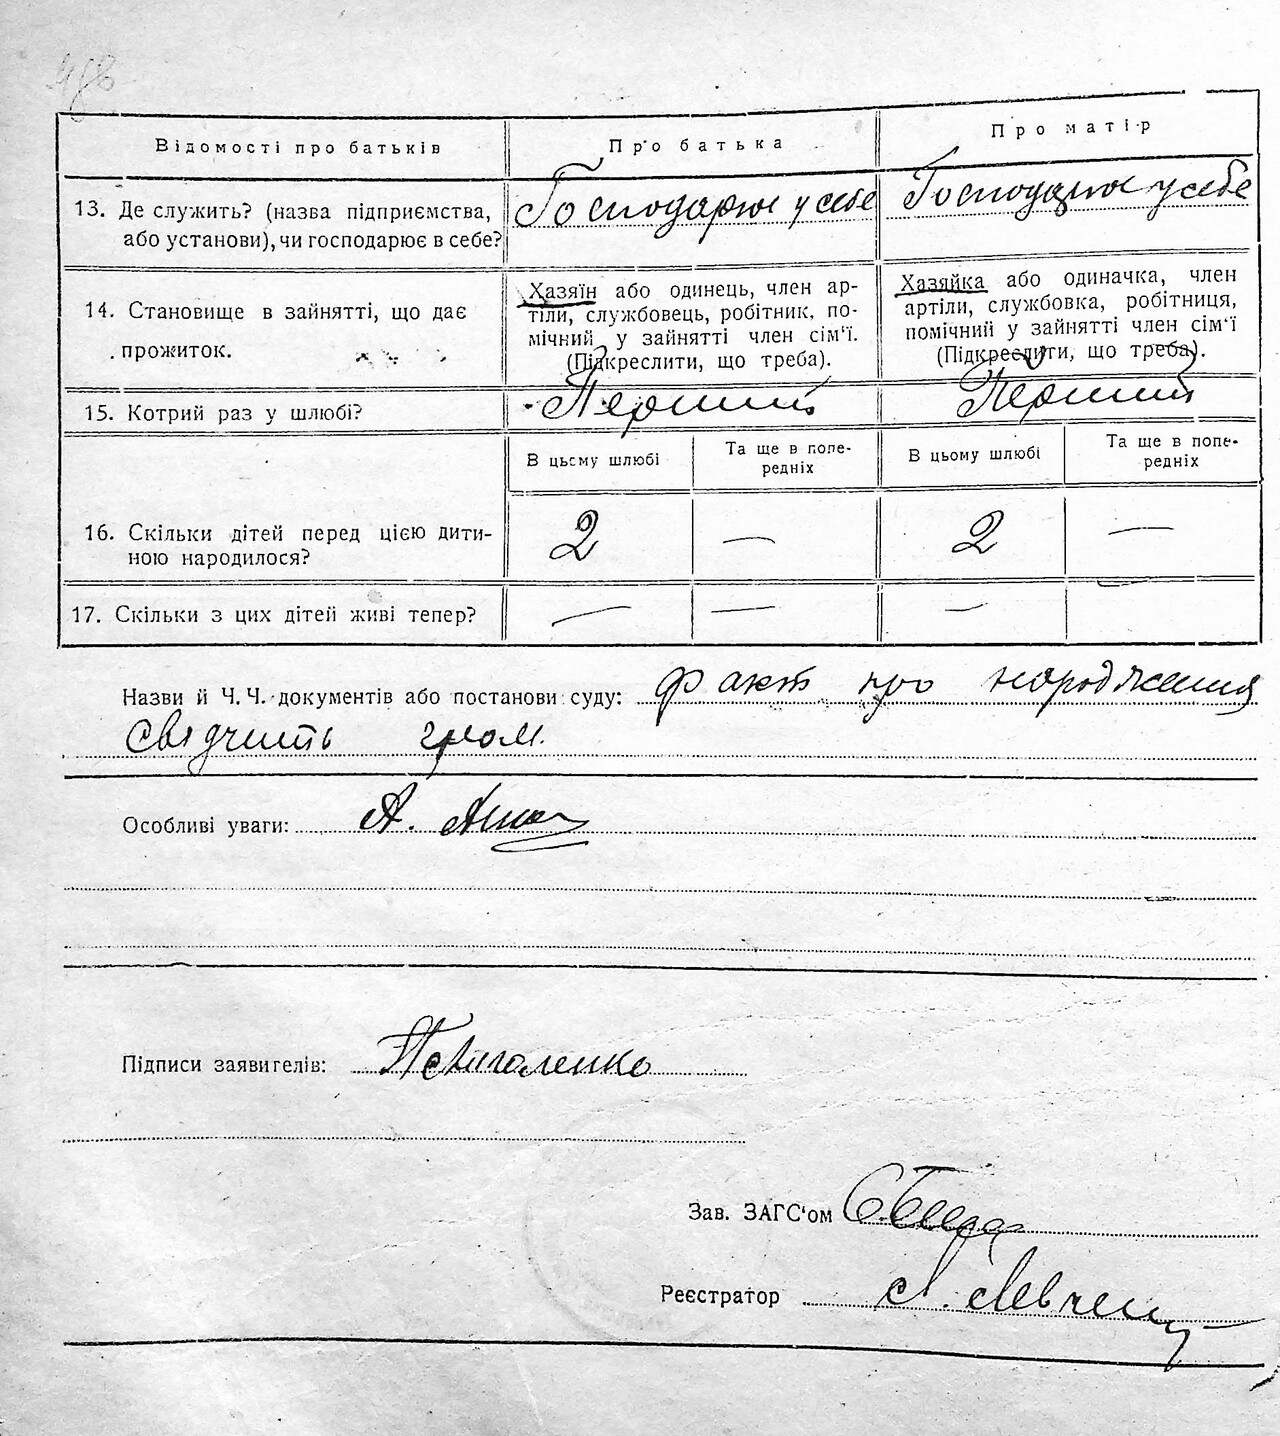 Відомості про батьків
Про батька
Про матір
13. Де служить? (назва підприємства,
або установи), чи господарює в себе?
Господарює у себе
Господарює у себе
14. Становище в зайнятті, що дає
прожиток.
Хазяїн або одинець, член ар-
тіли, службовець, робітник, по-
мічний у зайнятті член сім'ї.
(Підкреслити, що треба).
Хазяйка або одиначка, член
артіли, службовка, робітниця,
помічний у зайнятті член сім'ї
(Підкреслити, що треба).
15. Котрий раз у шлюбі?
Перший
Перший
В цьому шлюбі
Та ще в попе-
редніх
В цьому шлюбі
Та ще в попе-
редніх
16. Скільки дітей перед цією дити-
ною народилося?
2
—
2
—
17. Скільки з цих дітей живі тепер?
—
—
—
—
Назви й Ч. Ч. документів або постанови суду: факт про народження
свідчить гром.
Особливі уваги: А.
Підписи заявителів:
Зав. ЗАГС'ом
Реєстратор